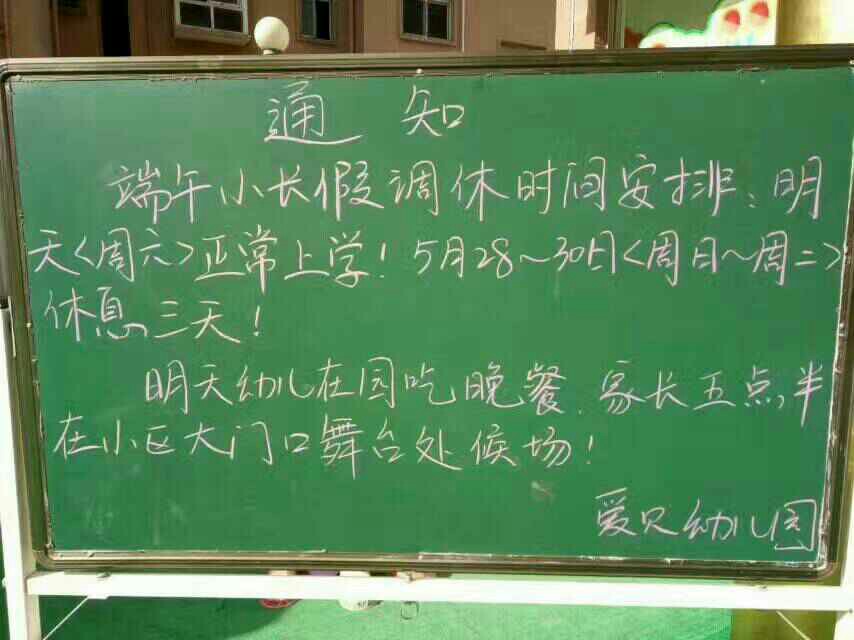 通 知
端午小长假调休时间安排:明
天<周六>正常上学!5月28~30日<周日~周二>
休息三天!
明天幼儿在园吃晚餐.家长五点半
在小区大门口舞台处候场!
爱贝幼儿园